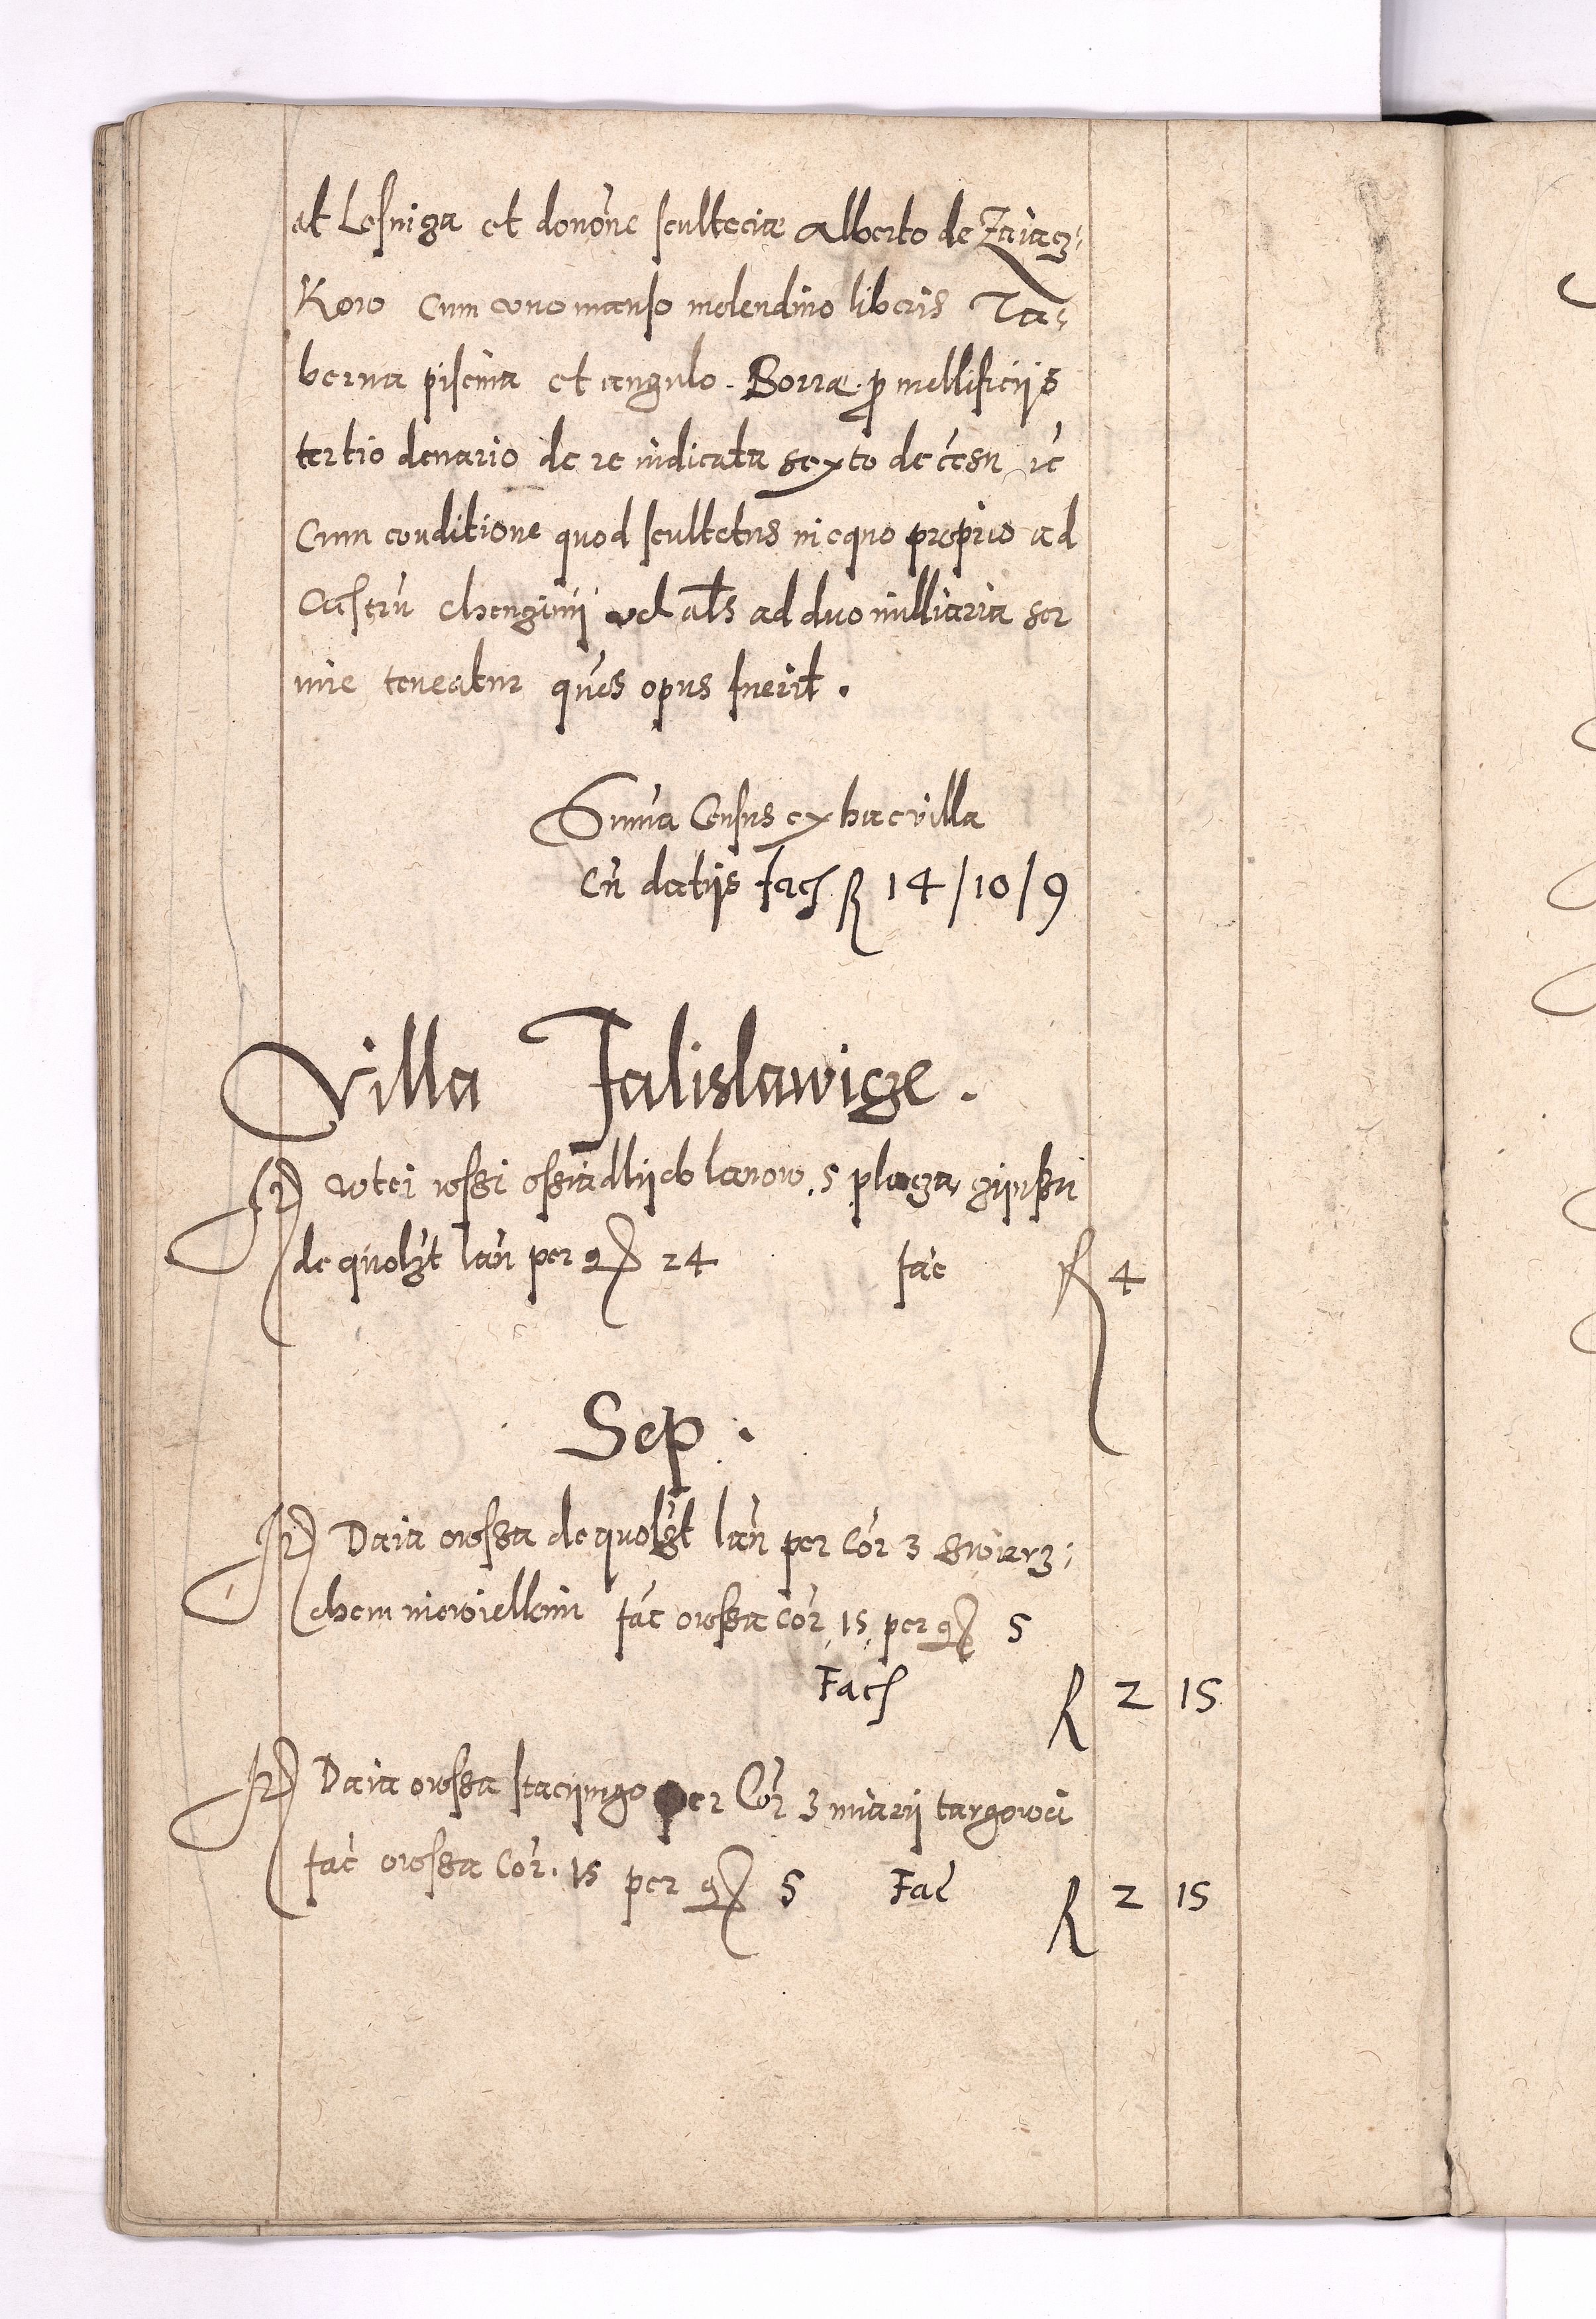 et Lesniga et donōne scultecia Alberto de Zaiącz
kow Cum uno manso molendino liberis Ta-
berna piscina et angulo Borrae pro mellificijs
tertio denario de re iudicata sexto de cēsu ic
Cum conditione quod scultetus in equo proprio ad
Castrū chenginij vel als ad duo milliaria ser
uire teneatur qūes opus fuerit.
Sumā Census ex hac villa
Cū datijs fac R 14/10/9
Villa Jalislawicze.
It) wtei wssi ossiadlijch lanow 5 placza czijnssu
de quolzt lan per g 24 fac R 4
Sep.
It) Daia owssa de quolzt lan per Cor 3 zwierz-
chem niewiellem fac owssa cor 15 per g 5
Fac R 2 15
It) Daia owssa stacijnego per Cor 3 miarij targowei
fac owssa Cor. 15 per g 5 Fac R 2 15